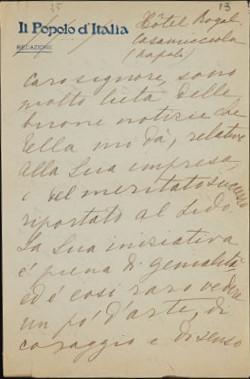 35
13
Il Popolo d'Italia
REDAZIONE
Hôtel Royal
Casamicciola
(Napoli)
Caro signore, sono
molto lieta delle
buone notizie che
Ella mi dà, relative
alla Sua impresa,
e del meritato successo
riportato al Lido.
La Sua iniziativa
è piena di genialità
ed è così raro vedere
un po' d'arte, di
coraggio e di senso